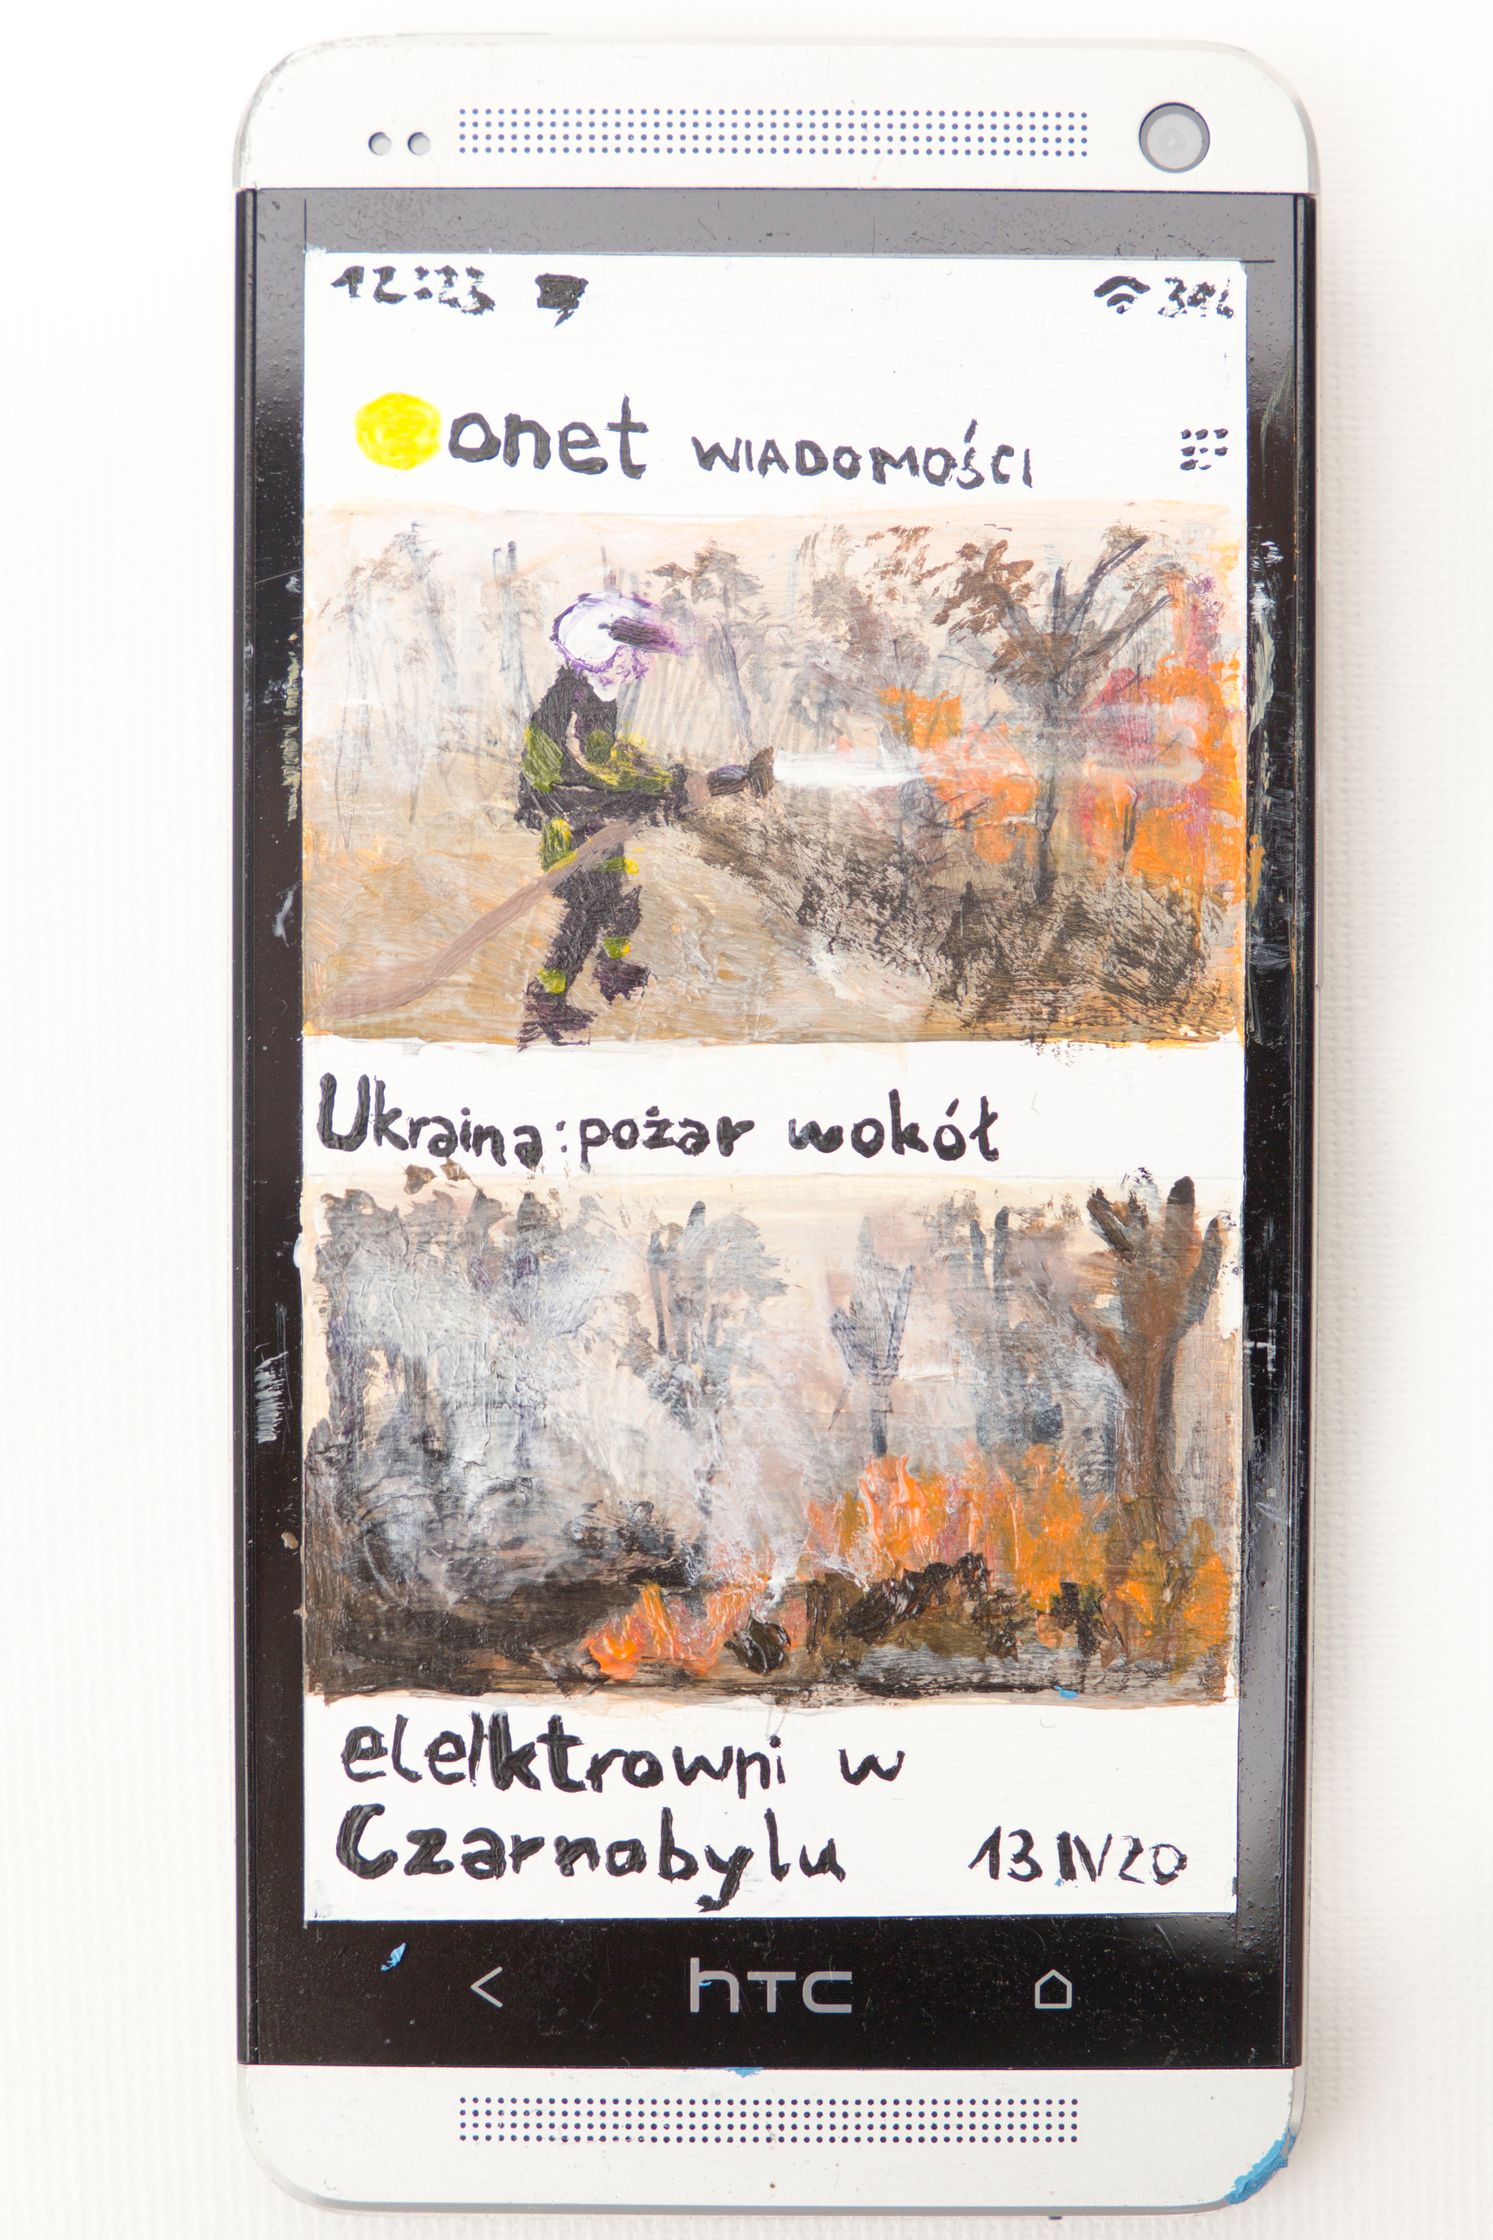 12:23 34%
onet WIADOMOŚCI
Ukraina: pożar wokół
elektrowni w
Czarnobylu 13 IV 20
hTC